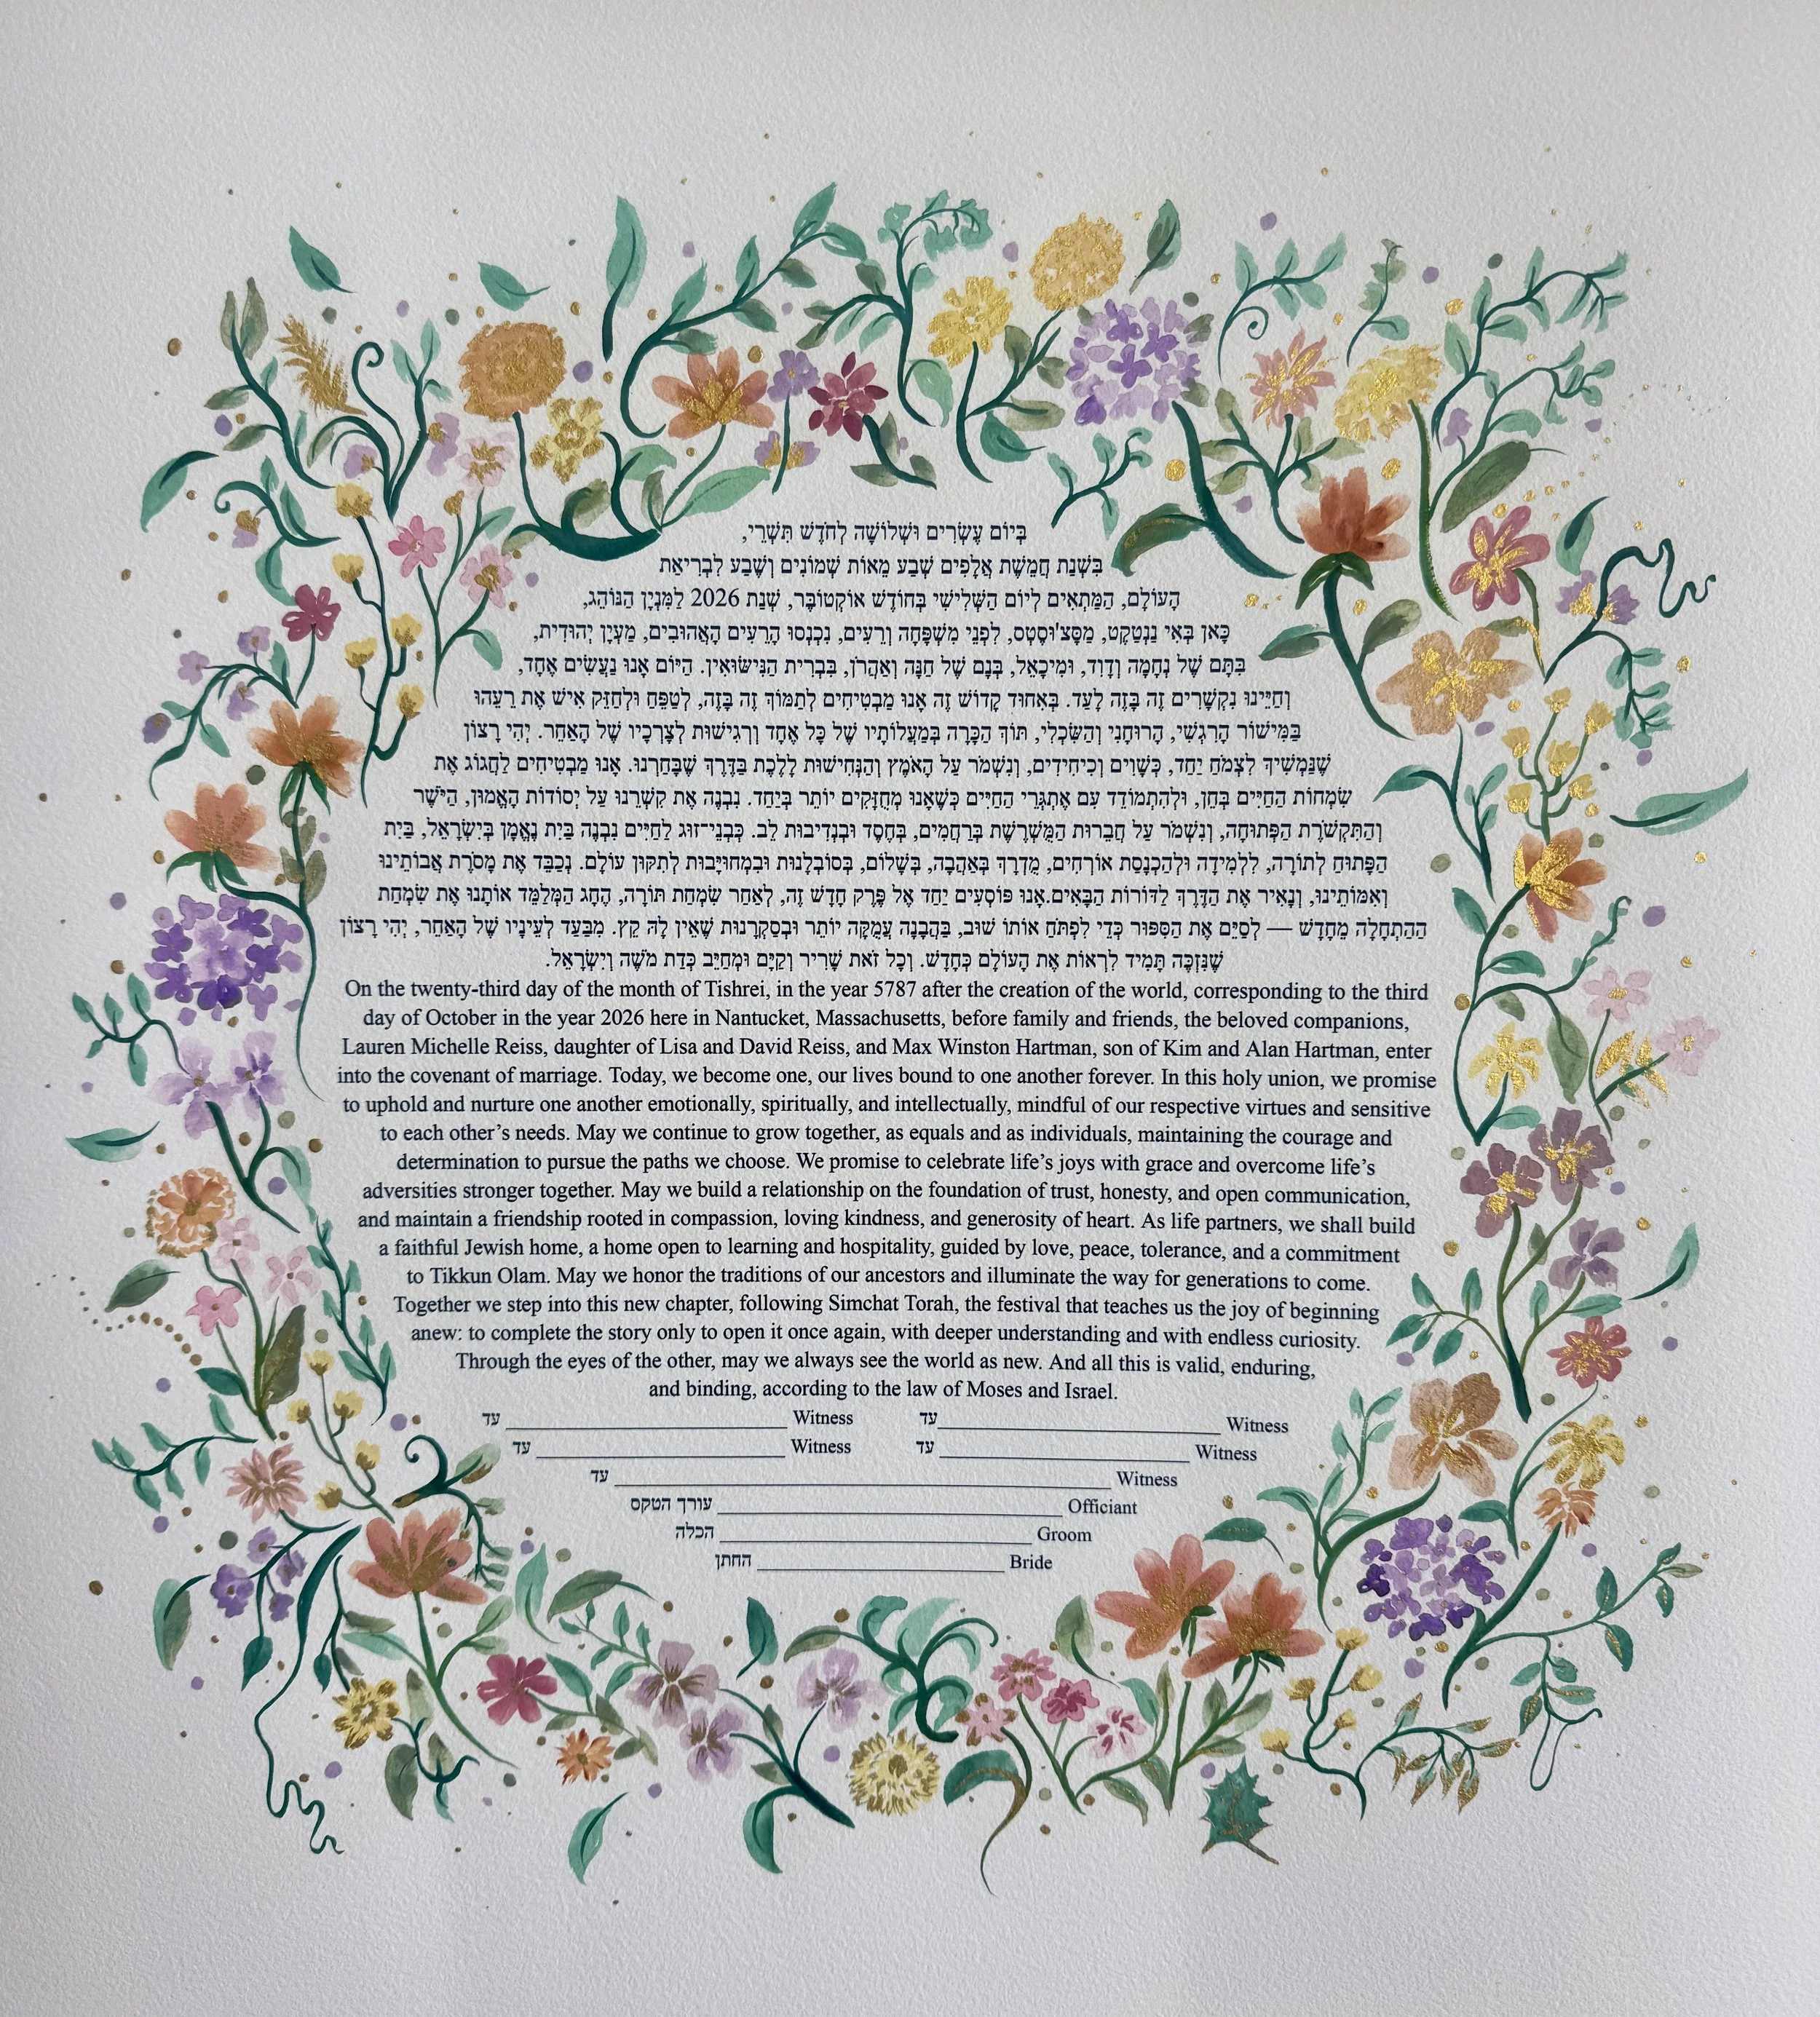 בְּיוֹם עֶשְׂרִים וּשְׁלוֹשָׁה לְחֹדֶשׁ תִּשְׁרֵי,
בִּשְׁנַת חֲמֵשֶׁת אֲלָפִים שְׁבַע מֵאוֹת שְׁמוֹנִים וְשֶׁבַע לִבְרִיאַת
הָעוֹלָם, הַמַּתְאִים לְיוֹם הַשְּׁלִישִׁי בְּחוֹדֶשׁ אוֹקְטוֹבֶּר, שְׁנַת 2026 לַמִּנְיָן הַנּוֹהֵג,
כָּאן בְּאִי נַנְטָקֶט, מַסָּצ'וּסֶטְס, לִפְנֵי מִשְׁפָּחָה וְרֵעִים, נִכְנְסוּ הָרֵעִים הָאֲהוּבִים, מַעְיָן יְהוּדִית,
בִּתָּם שֶׁל נְחָמָה וְדָוִד, וּמִיכָאֵל, בְּנָם שֶׁל חַנָּה וְאַהֲרֹן, בִּבְרִית הַנִּישּׂוּאִין. הַיּוֹם אָנוּ נַעֲשִׂים אֶחָד,
וְחַיֵּינוּ נִקְשָׁרִים זֶה בָּזֶה לָעַד. בְּאִחוּד קָדוֹשׁ זֶה אָנוּ מַבְטִיחִים לִתְמוֹךְ זֶה בָּזֶה, לְטַפֵּחַ וּלְחַזֵּק אִישׁ אֶת רֵעֵהוּ
בַּמִּישׁוֹר הָרִגְשִׁי, הָרוּחָנִי וְהַשִּׂכְלִי, תּוֹךְ הַכָּרָה בְּמַעֲלוֹתָיו שֶׁל כָּל אֶחָד וְרְגִישׁוּת לִצְרָכָיו שֶׁל הָאַחֵר. יְהִי רָצוֹן
שֶׁנַּמְשִׁיךְ לִצְמֹחַ יַחַד, כְּשָׁוִים וְכִיחִידִים, וְנִשְׁמֹר עַל הָאֹמֶץ וְהַנְּחִישׁוּת לָלֶכֶת בַּדֶּרֶךְ שֶׁבָּחַרְנוּ. אָנוּ מַבְטִיחִים לַחֲגוֹג אֶת
שִׂמְחוֹת הַחַיִּים בְּחֵן, וּלְהִתְמוֹדֵד עִם אֶתְגְּרֵי הַחַיִּים כְּשֶׁאָנוּ מְחֻזָּקִים יוֹתֵר בְּיַחַד. נִבְנֶה אֶת קִשְׁרֵנוּ עַל יְסוֹדוֹת הָאֵמוּן, הַיֹּשֶׁר
וְהַתִּקְשֹׁרֶת הַפְּתוּחָה, וְנִשְׁמֹר עַל חֲבֵרוּת הַמֻּשְׁרֶשֶׁת בְּרַחֲמִים, בְּחֶסֶד וּבִנְדִיבוּת לֵב. כִּבְנֵי־זוּג לַחַיִּים נִבְנֶה בַּיִת נֶאֱמָן בְּיִשְׂרָאֵל, בַּיִת
הַפָּתוּחַ לְתוֹרָה, לִלְמִידָה וּלְהַכְנָסַת אוֹרְחִים, מֻדְרָךְ בְּאַהֲבָה, בְּשָׁלוֹם, בְּסוֹבְלָנוּת וּבִמְחוּיָּבוּת לְתִקּוּן עוֹלָם. נְכַבֵּד אֶת מָסֹרֶת אֲבוֹתֵינוּ
וְאִמּוֹתֵינוּ, וְנָאִיר אֶת הַדֶּרֶךְ לַדּוֹרוֹת הַבָּאִים.אָנוּ פּוֹסְעִים יַחַד אֶל פֶּרֶק חָדָשׁ זֶה, לְאַחַר שִׂמְחַת תּוֹרָה, הֶחָג הַמְּלַמֵּד אוֹתָנוּ אֶת שִׂמְחַת
הַהַתְחָלָה מֵחָדָשׁ — לְסַיֵּם אֶת הַסִּפּוּר כְּדֵי לִפְתֹּחַ אוֹתוֹ שׁוּב, בַּהֲבָנָה עֲמֻקָּה יוֹתֵר וּבְסַקְרָנוּת שֶׁאֵין לָהּ קֵץ. מִבַּעַד לְעֵינָיו שֶׁל הָאַחֵר, יְהִי רָצוֹן
שֶׁנִּזְכֶּה תָּמִיד לִרְאוֹת אֶת הָעוֹלָם כְּחָדָשׁ. וְכָל זֹאת שָׁרִיר וְקַיָּם וּמְחַיֵּב כְּדַת מֹשֶׁה וְיִשְׂרָאֵל.
On the twenty-third day of the month of Tishrei, in the year 5787 after the creation of the world, corresponding to the third
day of October in the year 2026 here in Nantucket, Massachusetts, before family and friends, the beloved companions,
Lauren Michelle Reiss, daughter of Lisa and David Reiss, and Max Winston Hartman, son of Kim and Alan Hartman, enter
into the covenant of marriage. Today, we become one, our lives bound to one another forever. In this holy union, we promise
to uphold and nurture one another emotionally, spiritually, and intellectually, mindful of our respective virtues and sensitive
to each other’s needs. May we continue to grow together, as equals and as individuals, maintaining the courage and
determination to pursue the paths we choose. We promise to celebrate life’s joys with grace and overcome life’s
adversities stronger together. May we build a relationship on the foundation of trust, honesty, and open communication,
and maintain a friendship rooted in compassion, loving kindness, and generosity of heart. As life partners, we shall build
a faithful Jewish home, a home open to learning and hospitality, guided by love, peace, tolerance, and a commitment
to Tikkun Olam. May we honor the traditions of our ancestors and illuminate the way for generations to come.
Together we step into this new chapter, following Simchat Torah, the festival that teaches us the joy of beginning
anew: to complete the story only to open it once again, with deeper understanding and with endless curiosity.
Through the eyes of the other, may we always see the world as new. And all this is valid, enduring,
and binding, according to the law of Moses and Israel.
עד Witness עד Witness
עד Witness עד Witness
עד Witness
עורך הטקס Officiant
הכלה Groom
החתן Bride